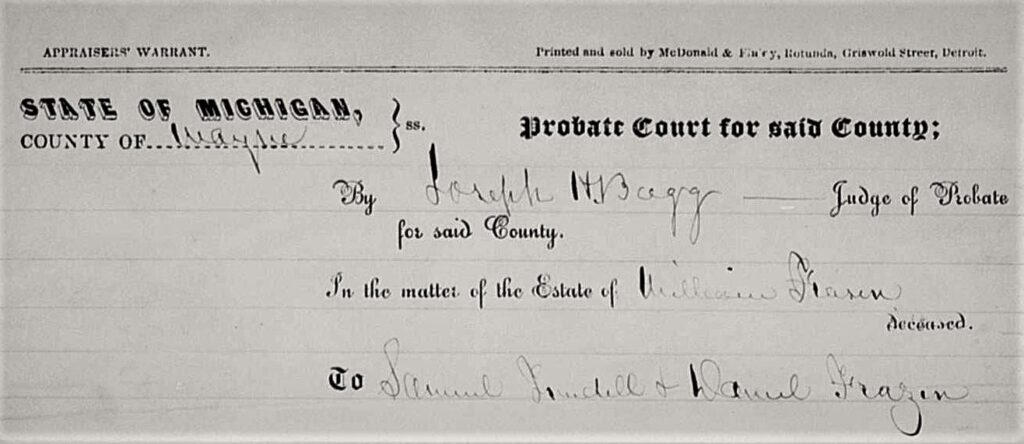 APPRAISERS' WARRANT. Printed and sold by McDonald & Finey, Rotunda, Griswold Street, Detroit.
STATE OF MICHIGAN, } ss.
COUNTY OF Wayne
Probate Court for said County;
By Joseph H. Bagg Judge of Probate
for said County.
In the matter of the Estate of William Frazer
deceased.
To Samuel & Daniel Frazer